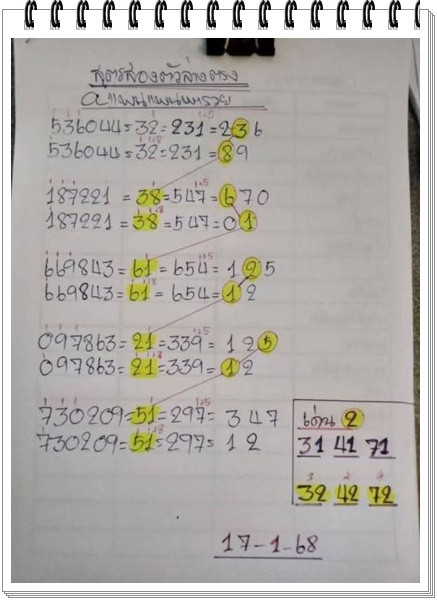 สูตรสองตัวล่างตรง
อ.แพนแพนพารวย
536044=32=231=236
536044=32=231=89
187221=38=547=670
187221=38=547=01
669843=61=654=125
669843=61=654=12
097863=21=339=125
097863=21=339=12
730209=51=297=347
730209=51=297=12
เด่น 2
31 41 71
32 42 72
17-1-68